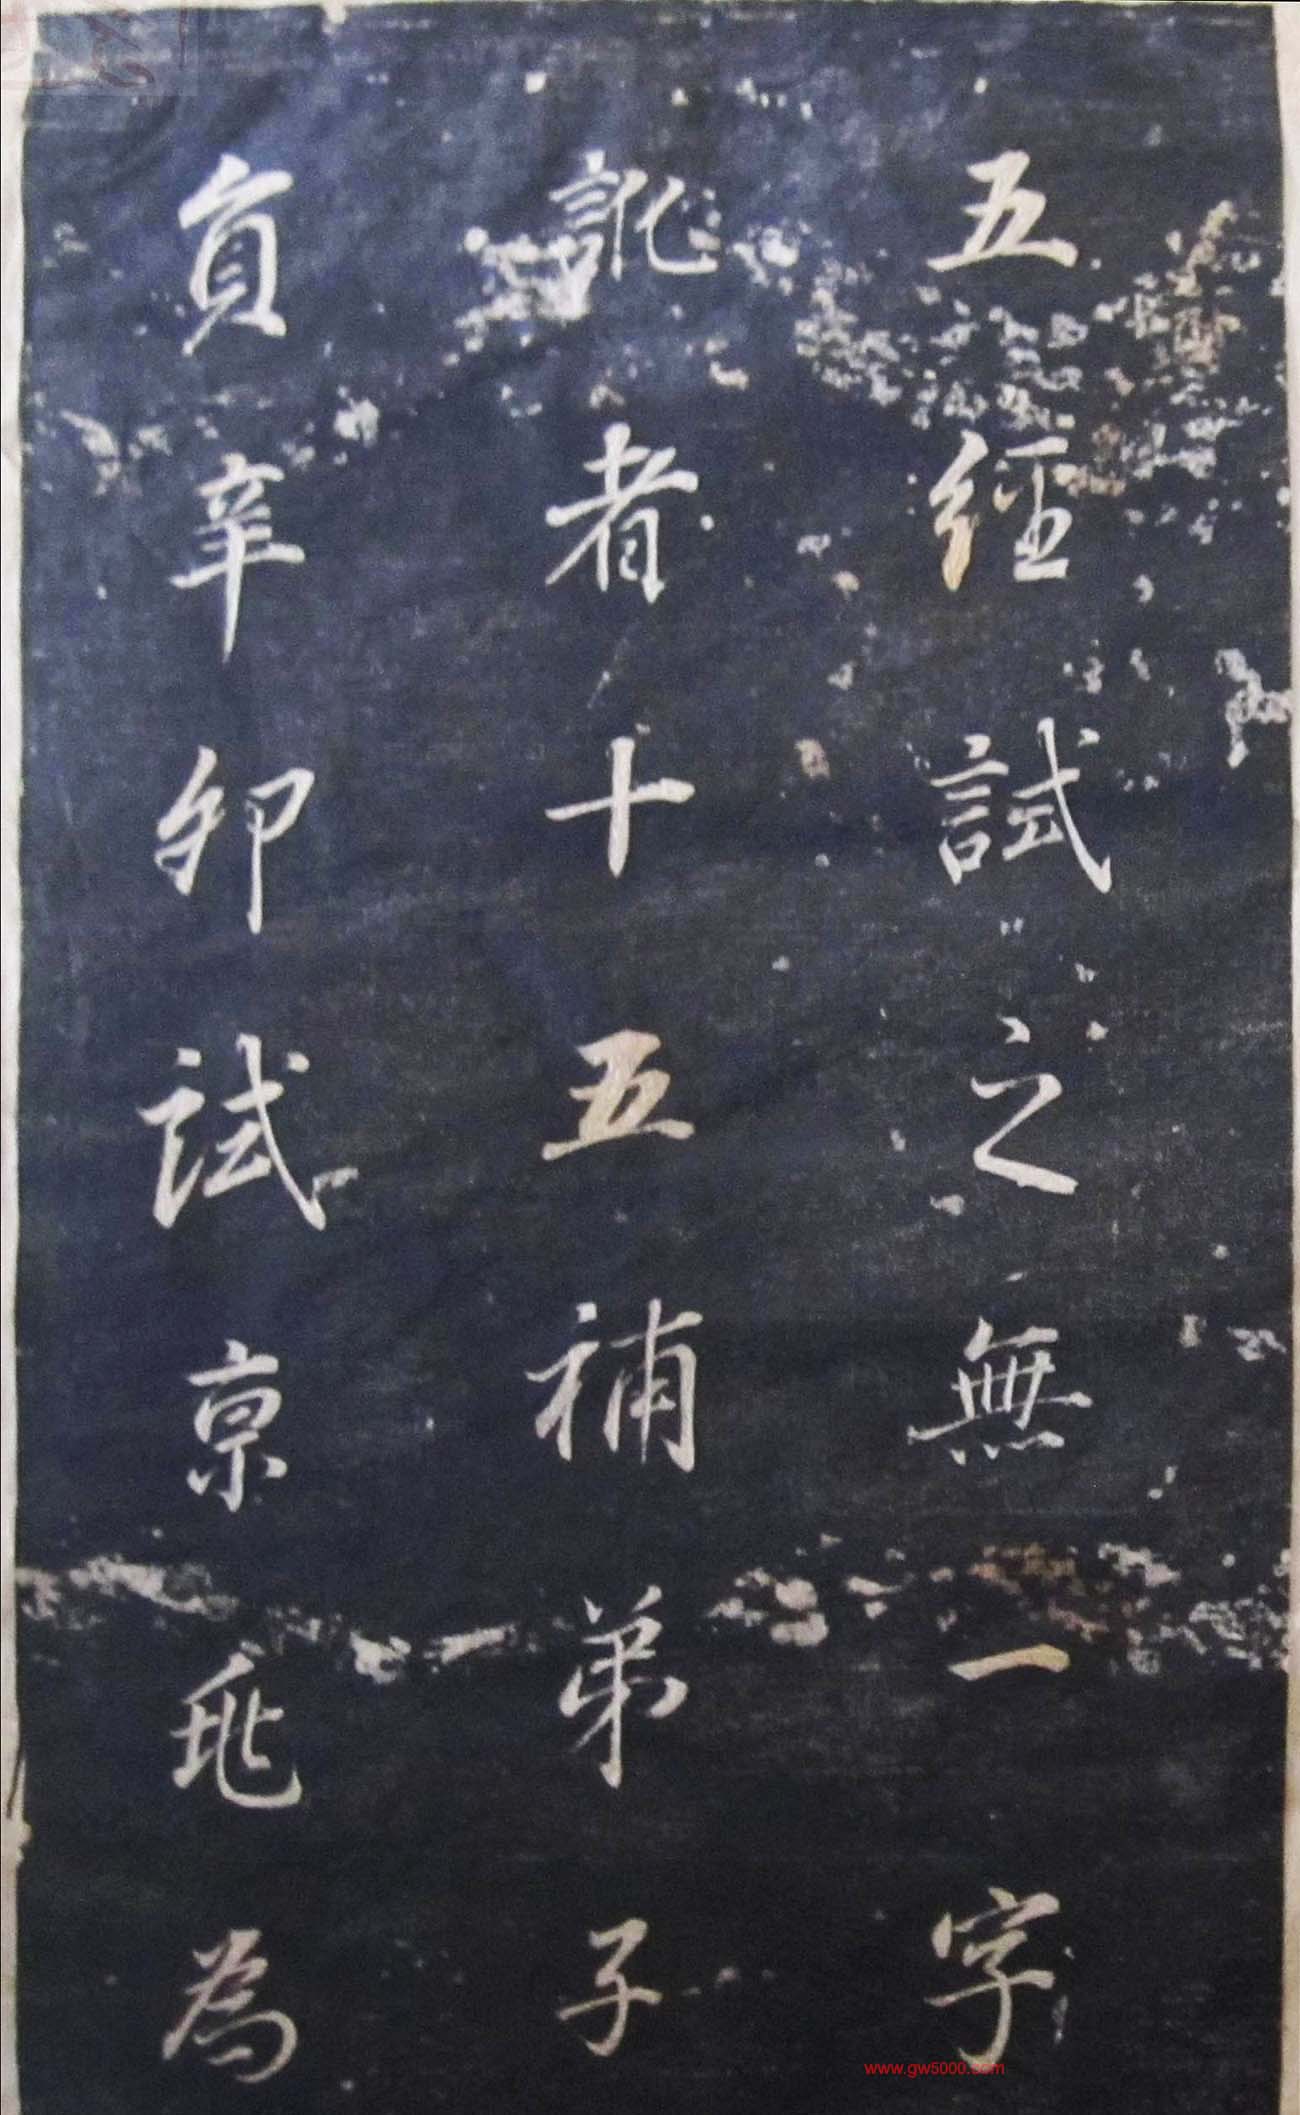 五經試之無一字
訛者十五補弟子
員辛卯試京兆為
www.gw5000.com